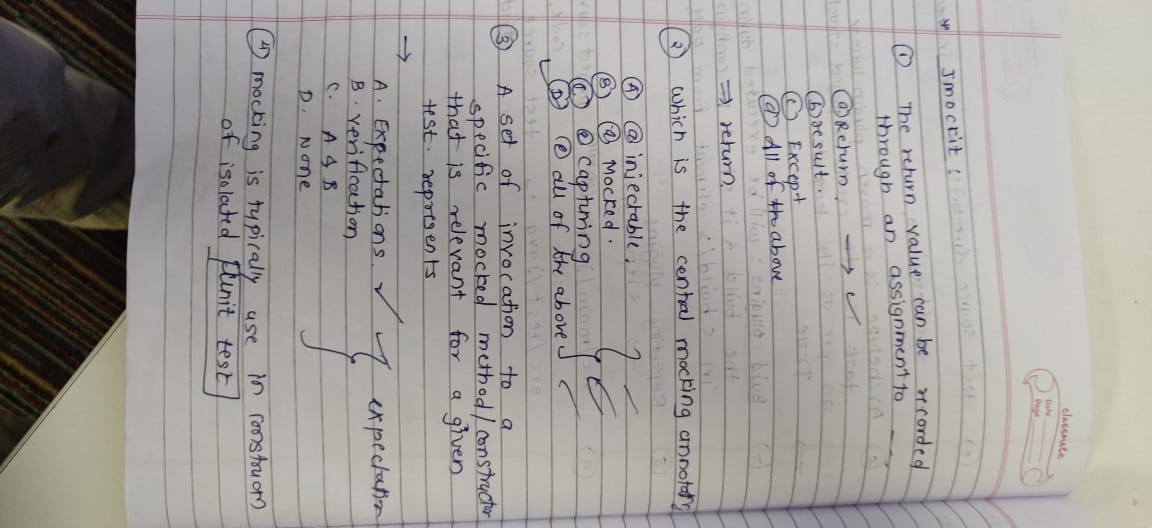 classmate
Date
Page
* Jmockit :
① The return value can be recorded
through an assignment to
ⓐ Return → ✓
ⓑ result.
ⓒ Except
ⓓ All of the above
⇒ return.
② which is the central mocking
Ⓐ @ injectable,
Ⓑ @ Mocked.
Ⓒ @ capturing
Ⓓ @ all of the above
③ A set of invocation to a
specific mocked method/constructor
that is relevant for a given
test. represents
→
A. Expectations. ✓ expectation
B. verification
C. A & B
D. None
④ mocking is typically use in
of isolated unit test